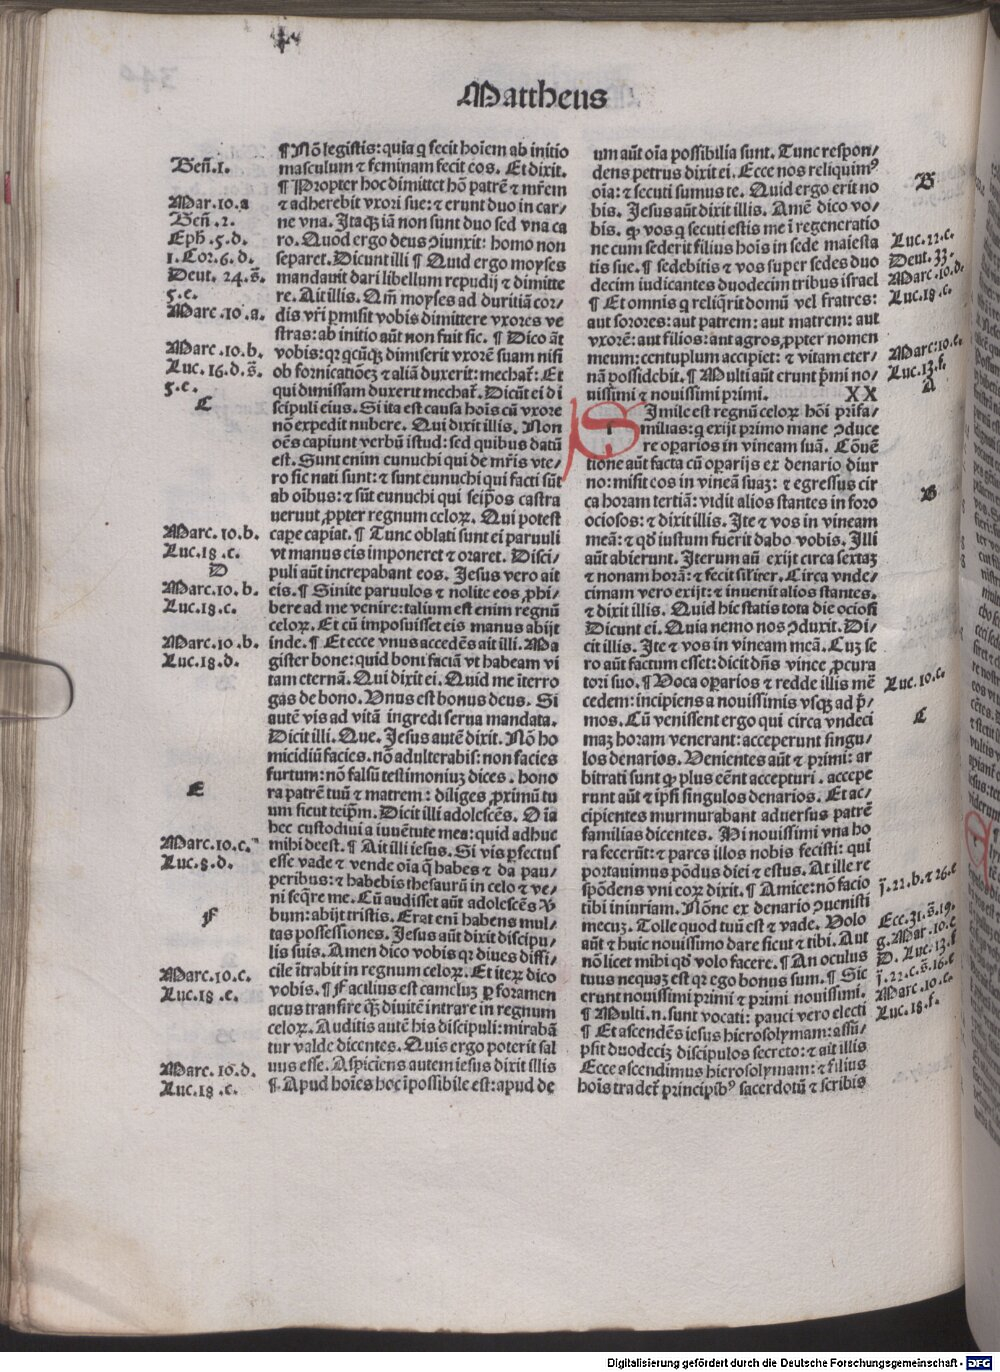 Mattheus
¶ Nō legistis: quia q̇ fecit hoīem ab initio
masculum ⁊ feminam fecit eos. Et dixit.
¶ Propter hoc dimittet hō patrē ⁊ mr̄em
⁊ adherebit vxori sue: ⁊ erunt duo in car/
ne vna. Itaqꝫ iā non sunt duo sed vna ca
ro. Quod ergo deus ꝯiunxit: homo non
separet. Dicunt illi ¶ Quid ergo moyses
mandauit dari libellum repudij ⁊ dimitte
re. Ait illis. Qm̄ moyses ad duritiā cor/
dis vr̄i ꝑmisit vobis dimittere vxores ve
stras: ab initio aūt non fuit sic. ¶ Dico āt
vobis: qꝛ qcūqꝫ dimiserit vxorē suam nisi
ob fornicatiōeꝫ ⁊ aliā duxerit: mechat᷑: Et
qui dimissam duxerit mechat᷑. Dicūt ei di
scipuli eius. Si ita est causa hoīs cū vxore
nō expedit nubere. Qui dixit illis. Non
oēs capiunt verbū istud: sed quibus datū
est. Sunt enim eunuchi qui de mr̄is vte/
ro sic nati sunt: ⁊ sunt eunuchi qui facti sūt
ab oībus: ⁊ sūt eunuchi qui seip̄os castra
uerunt ꝓpter regnum celoꝝ. Qui potest
caꝑe capiat. ¶ Tunc oblati sunt ei paruuli
vt manus eis imponeret ⁊ oraret. Disci/
puli aūt increpabant eos. Jesus vero ait
eis. ¶ Sinite paruulos ⁊ nolite eos ꝓhi/
bere ad me venire: talium est enim regnū
celoꝝ. Et cū imposuisset eis manus abijt
inde. ¶ Et ecce vnus accedēs ait illi. Ma
gister bone: quid boni faciā vt habeam vi
tam eternā. Qui dixit ei. Quid me īterro
gas de bono. Vnus est bonus deus. Si
autē vis ad vitā ingredi serua mandata.
Dicit illi. Que. Jesus autē dixit. Nō ho
micidiū facies. nō adulterabis: non facies
furtum: nō falsū testimoniuꝫ dices. hono
ra patrē tuū ⁊ matrem: diliges ꝓximū tu
um sicut teip̄m. Dicit illi adolescēs. Oīa
hec custodiui a iuuētute mea: quid adhuc
mihi deest. ¶ Ait illi iesus. Si vis ꝑfectus
esse vade ⁊ vende oīa q̄ habes ⁊ da pau/
peribus: ⁊ habebis thesaurū in celo ⁊ ve/
ni seqr̄e me. Cū audisset aūt adolescēs v̄
bum: abijt tristis. Erat eni habens mul/
tas possessiones. Jesus aūt dixit discipu/
lis suis. Amen dico vobis qꝛ diues diffi/
cile ītrabit in regnum celoꝝ. Et iteꝝ dico
vobis. ¶ Facilius est cameluꝫ ꝑ foramen
acus transire q̄ꝫ diuitē intrare in regnum
celoꝝ. Auditis autē his discipuli: mirabā
tur valde dicentes. Quis ergo poterit sal
uus esse. Aspiciens autem iesus dixit illis
¶ Apud hoīes hoc īpossibile est: apud de
Beñ.1.
Mar.10.a
Beñ.2.
Eph̄.5.d.
1.Cor.6.d.
Deut. 24.s̄.
5.e.
Marc.10.a.
Marc.10.b.
Luc.16.d.s̄.
5.e.
C
Marc.10.b.
Luc.18.c.
D
Marc.10.b.
Luc.18.c.
Marc.10.b.
Luc.18.d.
E
Marc.10.c.
Luc.8.d.
F
Marc.10.c.
Luc.18.e.
Marc.10.d.
Luc.18.e.
um aūt oīa possibilia sunt. Tunc respon/
dens petrus dixit ei. Ecce nos reliquimꝰ
oīa: ⁊ secuti sumus te. Quid ergo erit no
bis. Jesus aūt dixit illis. Amē dico vo/
bis. ꝙ vos q̇ secuti estis me ī regeneratio
ne cum sederit filius hoīs in sede maiesta
tis sue. ¶ sedebitis ⁊ vos super sedes duo
decim iudicantes duodecim tribus israel
¶ Et omnis q̇ reliq̇rit domū vel fratres:
aut sorores: aut patrem: aut matrem: aut
vxorē: aut filios: aut agros ꝓpter nomen
meum: centuplum accipiet: ⁊ vitam eter/
nā possidebit. ¶ Multi aūt erunt p̄mi no/
uissimi ⁊ nouissimi primi. XX
Simile est regnū celoꝝ hōi prīfa/
milias: q̇ exijt primo mane ꝯduce
re oꝑarios in vineam suā. Cōuē
tione aūt facta cū oꝑarijs ex denario diur
no: misit eos in vineā suaꝫ: ⁊ egressus cir
ca horam tertiā: vidit alios stantes in foro
ociosos: ⁊ dixit illis. Ite ⁊ vos in vineam
meā: ⁊ qd̄ iustum fuerit dabo vobis. Illi
aūt abierunt. Iterum aū exijt circa sextaꝫ
⁊ nonam horā: ⁊ fecit sil'iter. Circa vnde/
cimam vero exijt: ⁊ inuenit alios stantes.
⁊ dixit illis. Quid hic statis tota die ociosi
Dicunt ei. Quia nemo nos ꝯduxit. Di/
cit illis. Ite ⁊ vos in vineam meā. Cuꝫ se
ro aūt factum esset: dicit dn̄s vinee ꝓcura
tori suo. ¶ Voca oꝑarios ⁊ redde illis mē
cedem: incipiens a nouissimis vsqꝫ ad p̄/
mos. Cū venissent ergo qui circa vndeci
maꝫ horam venerant: acceperunt singu/
los denarios. Venientes aūt ⁊ primi: ar
bitrati sunt ꝙ plus eēnt accepturi. accepe
runt aūt ⁊ ip̄si singulos denarios. Et ac/
cipientes murmurabant aduersus patrē
familias dicentes. Hi nouissimi vna ho
ra fecerūt: ⁊ pares illos nobis fecisti: qui
portauimus pōdus diei ⁊ estus. At ille re
spōdens vni eoꝝ dixit. ¶ Amice: nō facio
tibi iniuriam. Nōne ex denario ꝯuenisti
mecuꝫ. Tolle quod tuū est ⁊ vade. Volo
aūt ⁊ huic nouissimo dare sicut ⁊ tibi. Aut
nō licet mihi qd̄ volo facere. ¶ An oculus
tuus nequaꝫ est qꝛ ego bonus sum. ¶ Sic
erunt nouissimi primi ⁊ primi nouissimi.
¶ Multi.n.sunt vocati: pauci vero electi
¶ Et ascendēs iesus hierosolymam: assū/
psit duodeciꝫ discipulos secreto: ⁊ ait illis
Ecce ascendimus hierosolymam: ⁊ filius
hoīs tradet᷑ principibꝰ sacerdotū ⁊ scribis
B
Luc.22.c.
Deut.33.
Marc.10.d.
Luc.18.c.
Marc:10.e.
Luc.13.f.
A
B
Luc.10.c.
C
j̄.22.b.⁊ 26.e
Ecc.31.s̄.19.
g.Mar.10.e
D. Luc.13.f
j̄.22.c.s̄.16.e
Marc.10.e.
Luc.18.f.
Digitalisierung gefördert durch die Deutsche Forschungsgemeinschaft - DFG